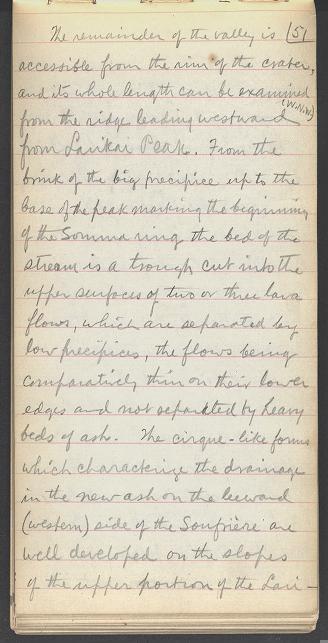 The remainder of the valley is (5)
accessible from the rim of the crater,
and its whole length can be examined
(W.N.W.)
from the ridge leading westward
from Larikai Peak. From the
brink of the big precipice up to the
base of the peak marking the beginning
of the Somma ring the bed of the
stream is a trough cut into the
upper surfaces of two or three lava
flows, which are separated by
low precipices, the flows being
comparatively thin on their lower
edges and not separated by heavy
beds of ash. The cirque-like forms
which characterize the drainage
in the new ash on the leeward
(western) side of the Soufrière are
well developed on the slopes
of the upper portion of the Lari-